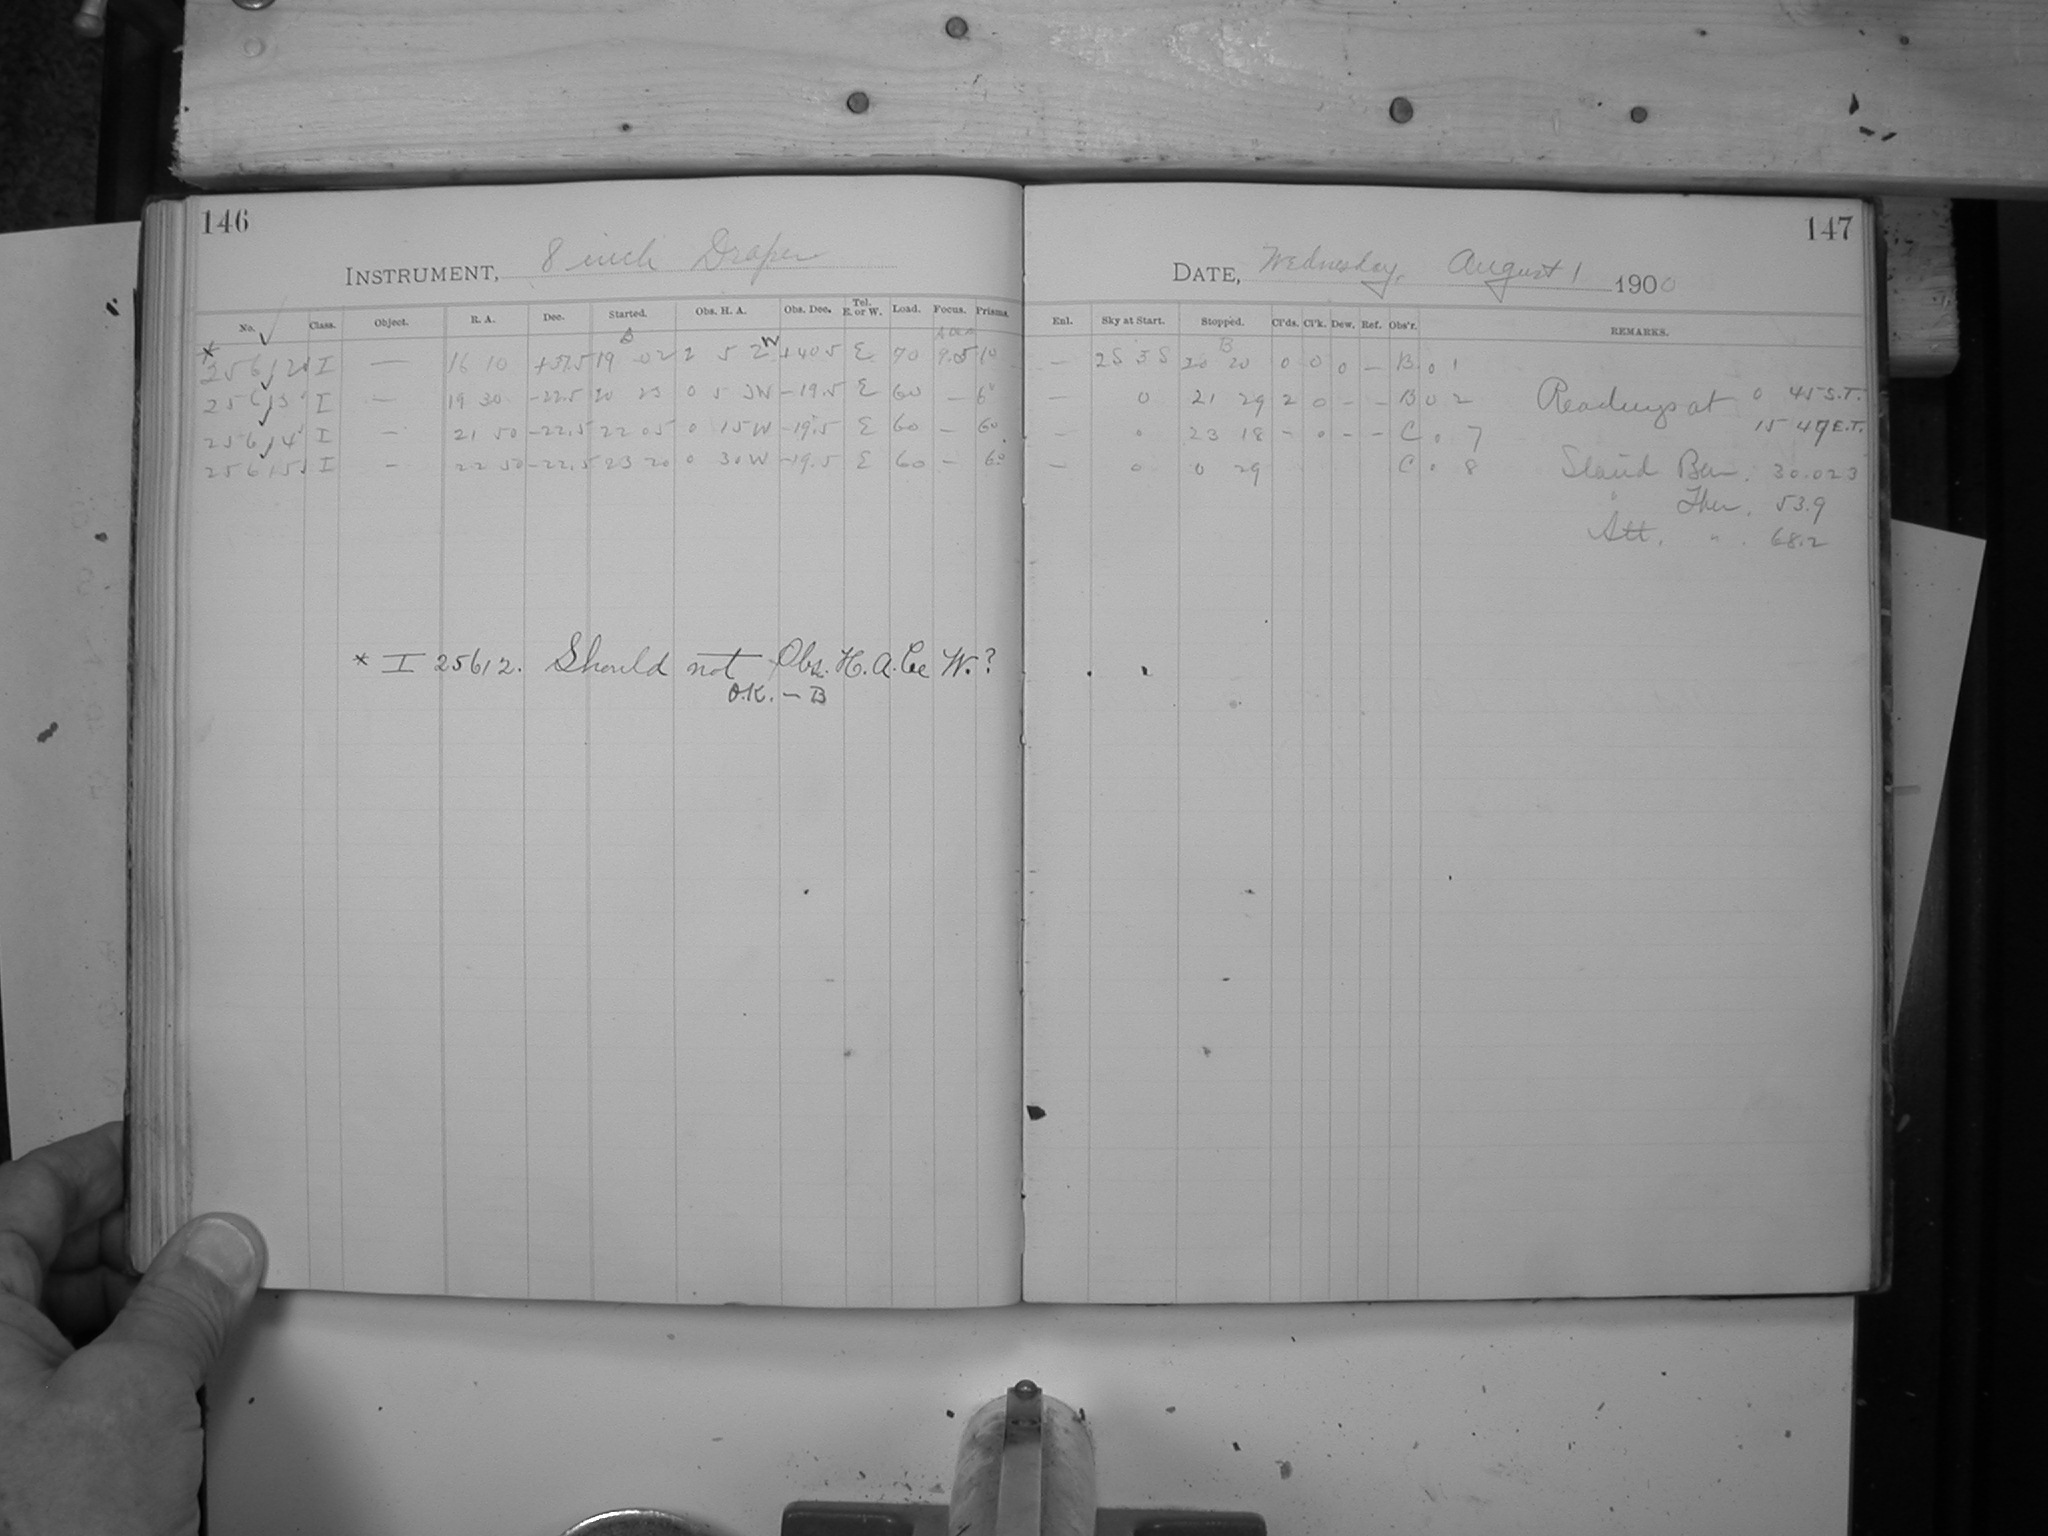 146
INSTRUMENT, 8 inch Draper
No. Class. Object. R. A. Dec. Started. Obs. H. A. Obs. Dec. Tel. E. or W. Load. Focus. Prisms.
* 25612 I — 16 10 +37.5 19 02 2 52 W +40.5 E 70 9.05 10
25613 I — 19 30 -22.5 20 23 0 53W -19.5 E 60 — 6°
25614 I — 21 50 -22.5 22 05 0 15W -19.5 E 60 — 60
25615 I — 22 50 -22.5 23 20 0 30W -19.5 E 60 — 60
* I 25612. Should not Obs. H. A. be W.?
O.K. — B
147
DATE, Wednesday, August 1 1900
Enl. Sky at Start. Stopped. Cl'ds. Cl'k. Dew. Ref. Obs'r. REMARKS.
B
— 25 35 20 20 0 0 0 — B. 0 1
— 0 21 29 2 0 - - B 0 2 Readings at 0 45 S.T.
— 0 23 18 - 0 - - C. 0 7 15 47 E.T.
— 0 0 29 C 0 8 Stand Bar. 30.023
" Ther. 53.9
Att. " . 68.2